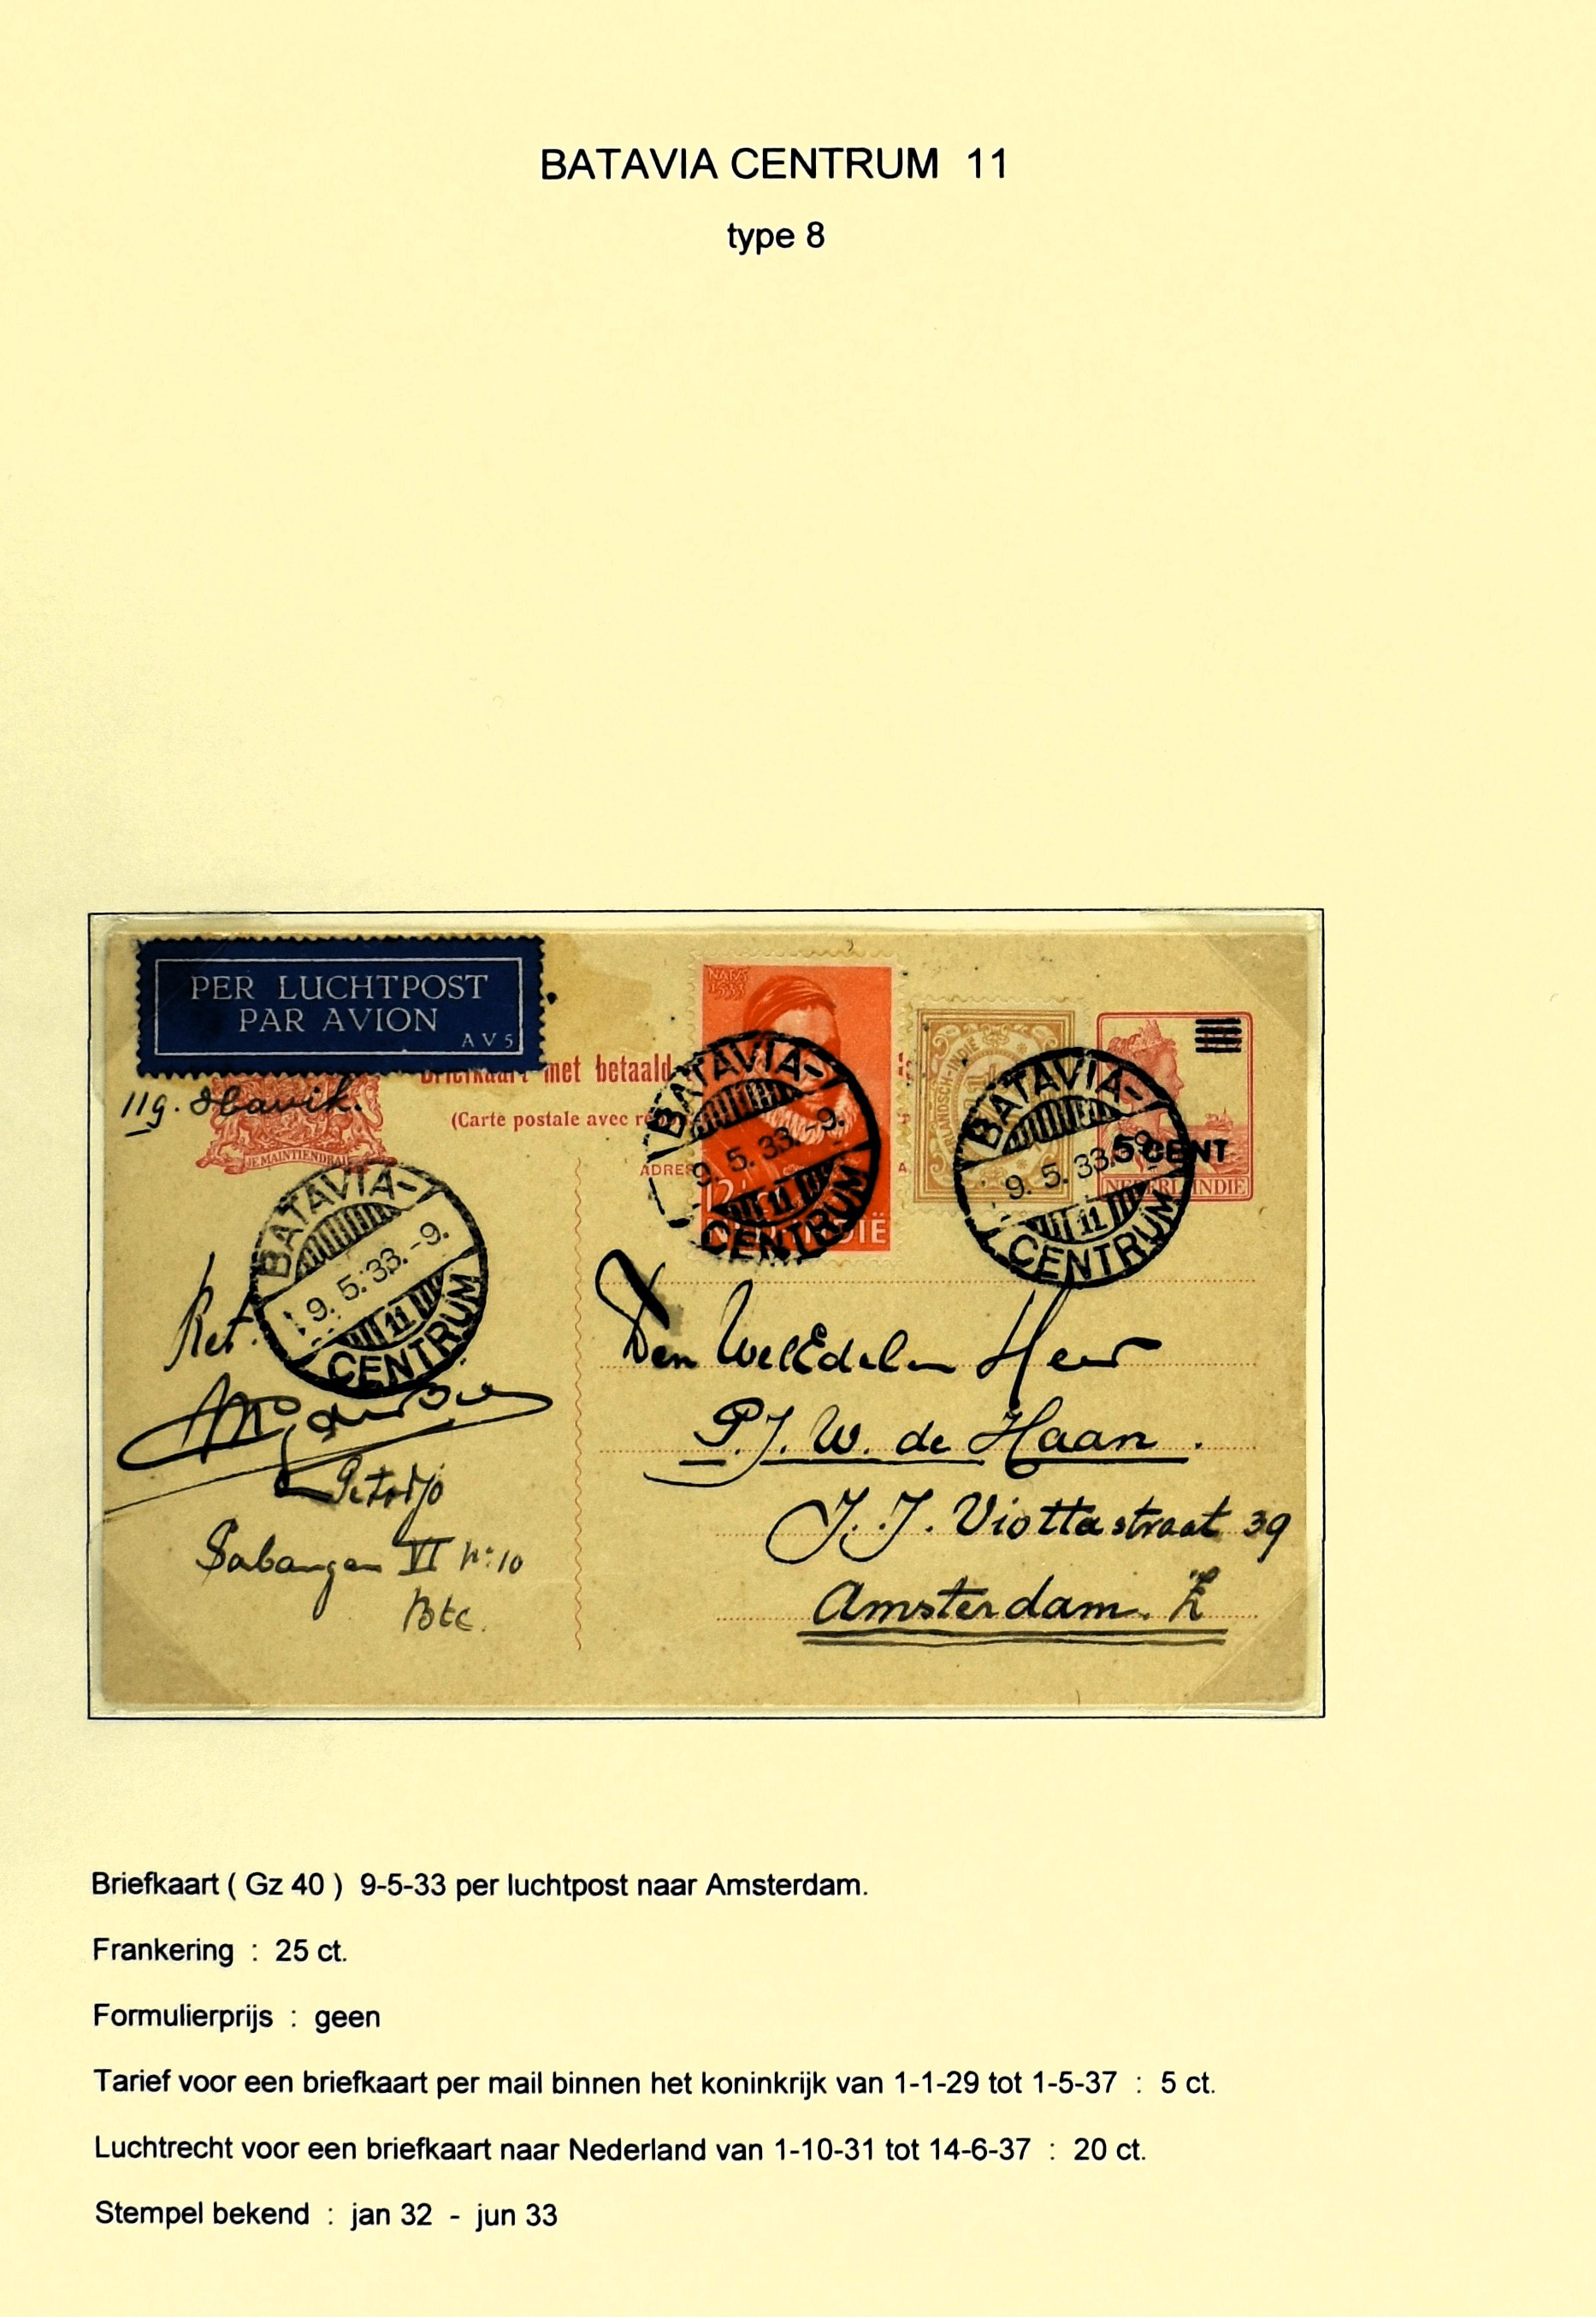 BATAVIA CENTRUM 11
type 8
PER LUCHTPOST
PAR AVION
AV5
Briefkaart met betaald
(Carte postale avec
JE MAINTIENDRAI
11g. Havik.
BATAVIA-
9.5.33.-9.
11
CENTRUM
BATAVIA-
9.5.33.-9.
11
CENTRUM
BATAVIA-
9.5.33.-9.
11
CENTRUM
5 CENT
NEDERL. INDIE
NED. INDIË
Den WelEdelen Heer
P.J.W. de Haan.
J.J. Viottastraat 39
Amsterdam. Z
Petodjo
Sabangan VI No 10
Btc.
Briefkaart ( Gz 40 ) 9-5-33 per luchtpost naar Amsterdam.
Frankering : 25 ct.
Formulierprijs : geen
Tarief voor een briefkaart per mail binnen het koninkrijk van 1-1-29 tot 1-5-37 : 5 ct.
Luchtrecht voor een briefkaart naar Nederland van 1-10-31 tot 14-6-37 : 20 ct.
Stempel bekend : jan 32 - jun 33